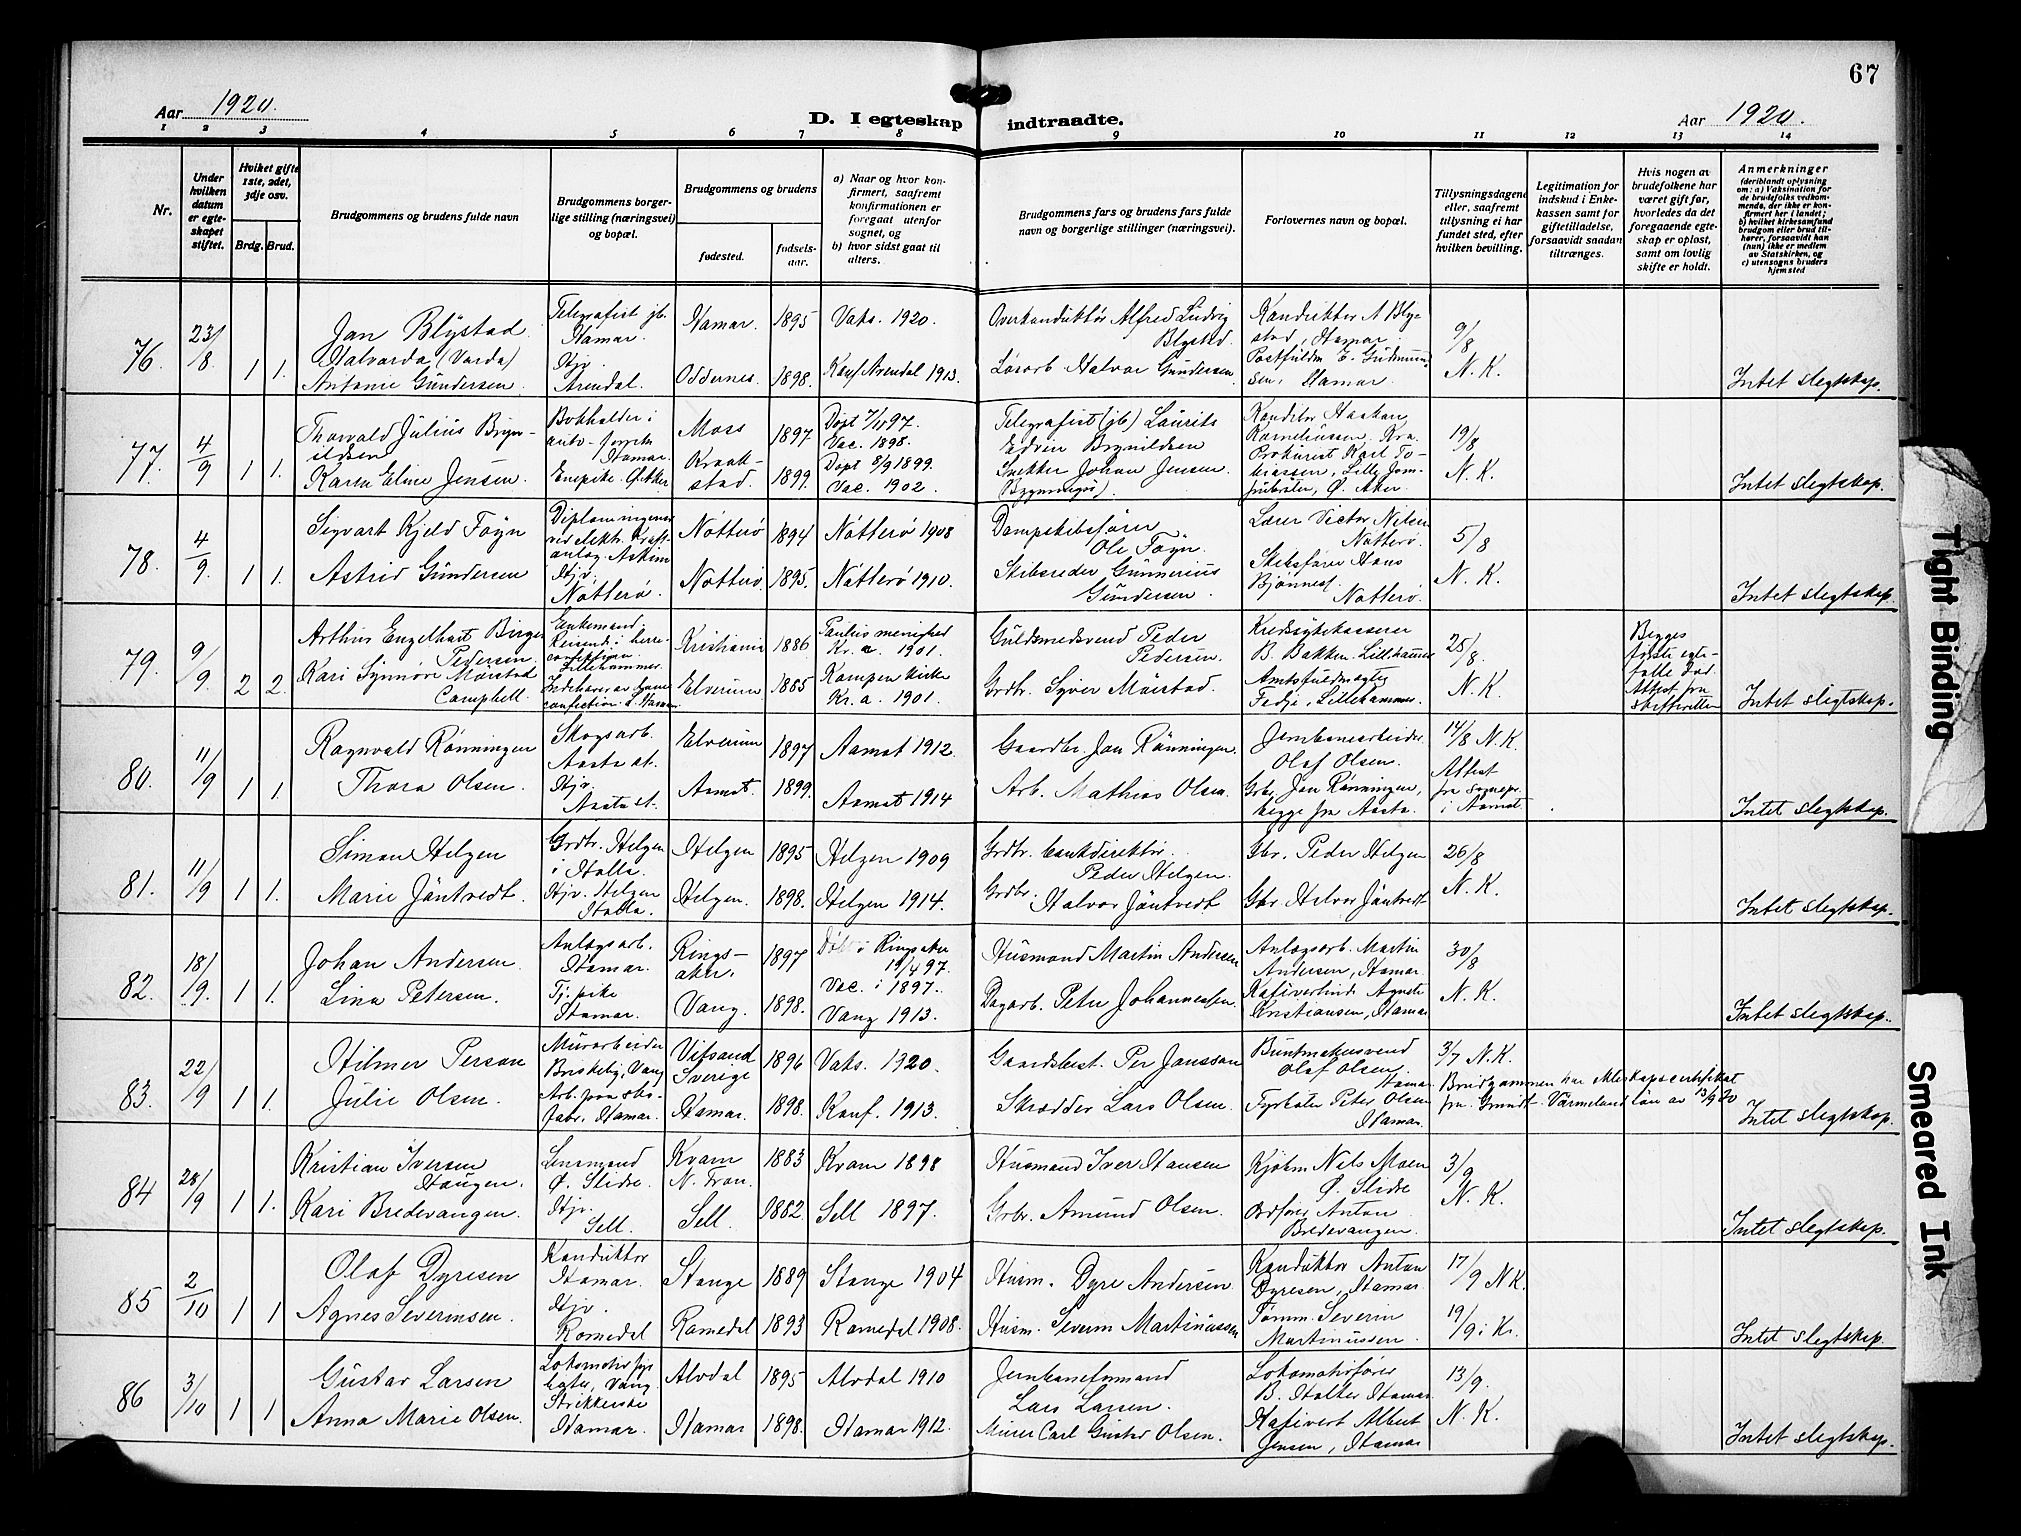 67
Aar 1920.
D. I egteskap indtraadte.
Aar 1920.
1 2 3 4 5 6 7 8 9 10 11 12 13 14
Nr.
Under hvilken datum er egteskapet stiftet.
Hvilket gifte 1ste, 2det, 3dje osv.
Brdg. Brud.
Brudgommens og brudens fulde navn
Brudgommens borgerlige stilling (næringsvei) og bopæl.
Brudgommens og brudens
fødested.
fødselsaar.
a) Naar og hvor konfirmert, saafremt konfirmationen er foregaat utenfor sognet, og
b) hvor sidst gaat til alters.
Brudgommens fars og brudens fars fulde navn og borgerlige stillinger (næringsvei).
Forlovernes navn og bopæl.
Tillysningsdagene eller, saafremt tillysning ei har fundet sted, efter hvilken bevilling.
Legitimation for indskud i Enkekassen samt for giftetilladelse, forsaavidt saadan tiltrænges.
Hvis nogen av brudefolkene har været gift før, hvorledes da det foregaaende egteskap er opløst, samt om lovlig skifte er holdt.
Anmerkninger
(deriblandt oplysning om: a) Vaksination for de brudefolks vedkommende, der ikke er konfirmert her i landet; b) hvilket kirkesamfund brudgom eller brud tilhører, forsaavidt han (hun) ikke er medlem av Statskirken, og c) utensogns bruders hjemsted
76. 23/8 1 1.
Jan Blystad
Halvarda (Varda) Antonie Gundersen.
Telegrafist jb. Hamar.
Hjv. Arendal.
Hamar. 1895 Vaks. 1920.
Oddernes. 1898. Konf Arendal 1913.
Overkonduktør Alfred Ludvig Blystad.
Løsarb Halvor Gundersen.
Konduktør A Blystad, Hamar.
Postfuldm E. Gudmundsen, Hamar.
9/8 N. K.
Intet slegtskap.
77. 4/9 1 1.
Thorvald Julius Brynildsen
Karen Eline Jensen.
Bokholder i auto-forretn Hamar.
Enepike Ø. Aker
Moss 1897 Døpt 7/11 97. Vac. 1898.
Kraakstad. 1899. Døpt 8/9 1899. Vac. 1902.
Telegrafist (jb) Laurits Edvin Brynildsen
Snekker Johan Jensen.
Konditor Haakon Korneliussen. Kra.
Prokurist Karl Tobiassen, Ø. Aker.
19/8 N. K.
Intet slegtskap.
78. 4/9. 1 1.
Sigvart Kjeld Føyn
Astrid Gundersen
Diplomingeniør ved elektr. Kraftanlæg. Askim
Hjv. Nøtterø.
Nøtterø 1894 Nøtterø 1908
Nøtterø 1895. Nøtterø 1910.
Dampskibsfører Ole Føyn.
Skibsreder Gunnerius Gundersen.
Lærer Victor Nilsen Nøtterø.
Skibsfører Hans Bjønness Nøtterø.
5/8 N. K.
Intet slegtskap.
79. 9/9 2 2.
Arthur Engelhart Birger Pedersen.
Kari Synnøve Mørstad Campbell.
Enkemand. Reisende i herreconfection. Lillehammer.
Indehaver av dameconfection. Hamar.
Kristiania 1886 Paulus menighed Kr. a. 1901.
Elverum 1885 Kampen kirke Kr. a. 1901.
Guldsmedsvend Peder Pedersen.
Grdbr. Syver Mørstad.
Kredssykekasserer B. Bakken. Lillehammer
Amtsfuldmægtig Fedje, Lillehammer.
25/8. N. K.
Begges første egtefælle død. Attest fra skifteretten
Intet slegtskap.
80. 11/9 1 1.
Ragnvald Rønningen
Thora Olsen.
Skogsarb. Aasta st.
Hjv. Aasta st.
Elverum 1897 Aamot 1912.
Aamot. 1899. Aamot 1914
Gaardbr. Jon Rønningen.
Arb. Mathias Olsen.
Jernbanearbeider Olaf Olsen.
Grbr. Jon Rønningen, begge fra Aasta.
14/8 N. K.
Attest fra sognepr. i Aamot.
Intet slegtskap.
81. 11/9 1 1.
Simon Helgen
Marie Jøntvedt.
Grdbr. Helgen i Holla.
Hjv. Helgen Holla.
Helgen 1895 Helgen 1909
Helgen. 1898. Helgen 1914.
Grdbr. bankdirektør. Peder Helgen.
Grdbr. Halvor Jøntvedt
Gbr. Peder Helgen
Gbr Halvor Jøntvedt
26/8 N. K.
Intet slegtskap.
82. 18/9. 1 1.
Johan Andersen
Lina Petersen.
Anlægsarb. Hamar.
Tj. pike Hamar.
Ringsaker. 1897 Døbt i Ringsaker 19/4 97. Vac. i 1897.
Vang. 1898. Vang 1913.
Husmand Martin Andersen
Dagarb. Peter Johannessen
Anlægsarb. Martin Andersen, Hamar.
Kafévertinde Agnete Kristiansen, Hamar
30/8 N. K.
Intet slegtskap.
83. 22/9 1 1.
Hilmer Person
Julie Olsen.
Murarbeider Briskeby, Vang
Arb. paa skofabr. Hamar.
Vitsand Sverige 1896 Vaks. 1920.
Hamar. 1898. Konf. 1913.
Gaardsbest. Per Jansson
Skrædder Lars Olsen.
Buntmakersvend Olaf Olsen. Hamar
Fyrbøter Peter Olsen Hamar.
3/7 N. K.
Brudgommen har ekteskapscertifikat fra Värmelands län av 13/9 20
Intet slegtskap.
84 28/9 1 1.
Kristian Iversen Haugen.
Kari Bredevangen.
Lensmand Ø. Slidre.
Hjv. Sell.
Kvam N. Fron. 1883 Kvam 1898
Sell. 1882. Sell 1897.
Husmand Iver Hansen
Grbr. Amund Olsen.
Kjøbm Nils Moen Ø. Slidre
Ordfører Anton Bredevangen.
3/9 N. K.
Intet slegtskap.
85 2/10 1 1
Olaf Dyresen
Agnes Severinsen.
Konduktør Hamar.
Hjv. Romedal
Stange 1889 Stange 1904
Romedal 1893 Romedal 1908.
Husm. Dyre Andersen
Husm. Severin Martinussen
Konduktør Anton Dyresen, Hamar.
Tømm. Severin Martinussen.
17/9 N K.
19/9 i Kr.
Intet slegtskap.
86 3/10 1 1
Gustav Larsen
Anna Marie Olsen.
Lokomotivfyrbøter, Vang.
Strikkerske Hamar.
Alvdal 1895 Alvdal 1910
Hamar 1898. Hamar 1912.
Jernbaneformand Lars Larsen.
Murer Carl Gustav Olsen.
Lokomotivfører B. Holter Hamar
Kafévert Albert Jensen, Hamar
13/9. N. K.
Intet slegtskap.
Tight Binding
Smeared Ink